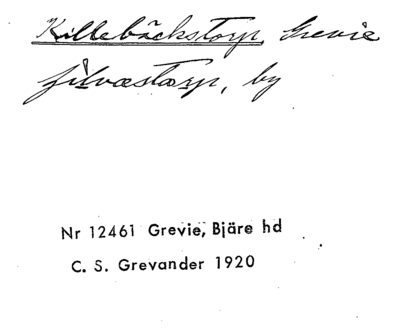 Killebäckstorp, Grevie
by
Nr 12461 Grevie, Bjäre hd
C. S. Grevander 1920